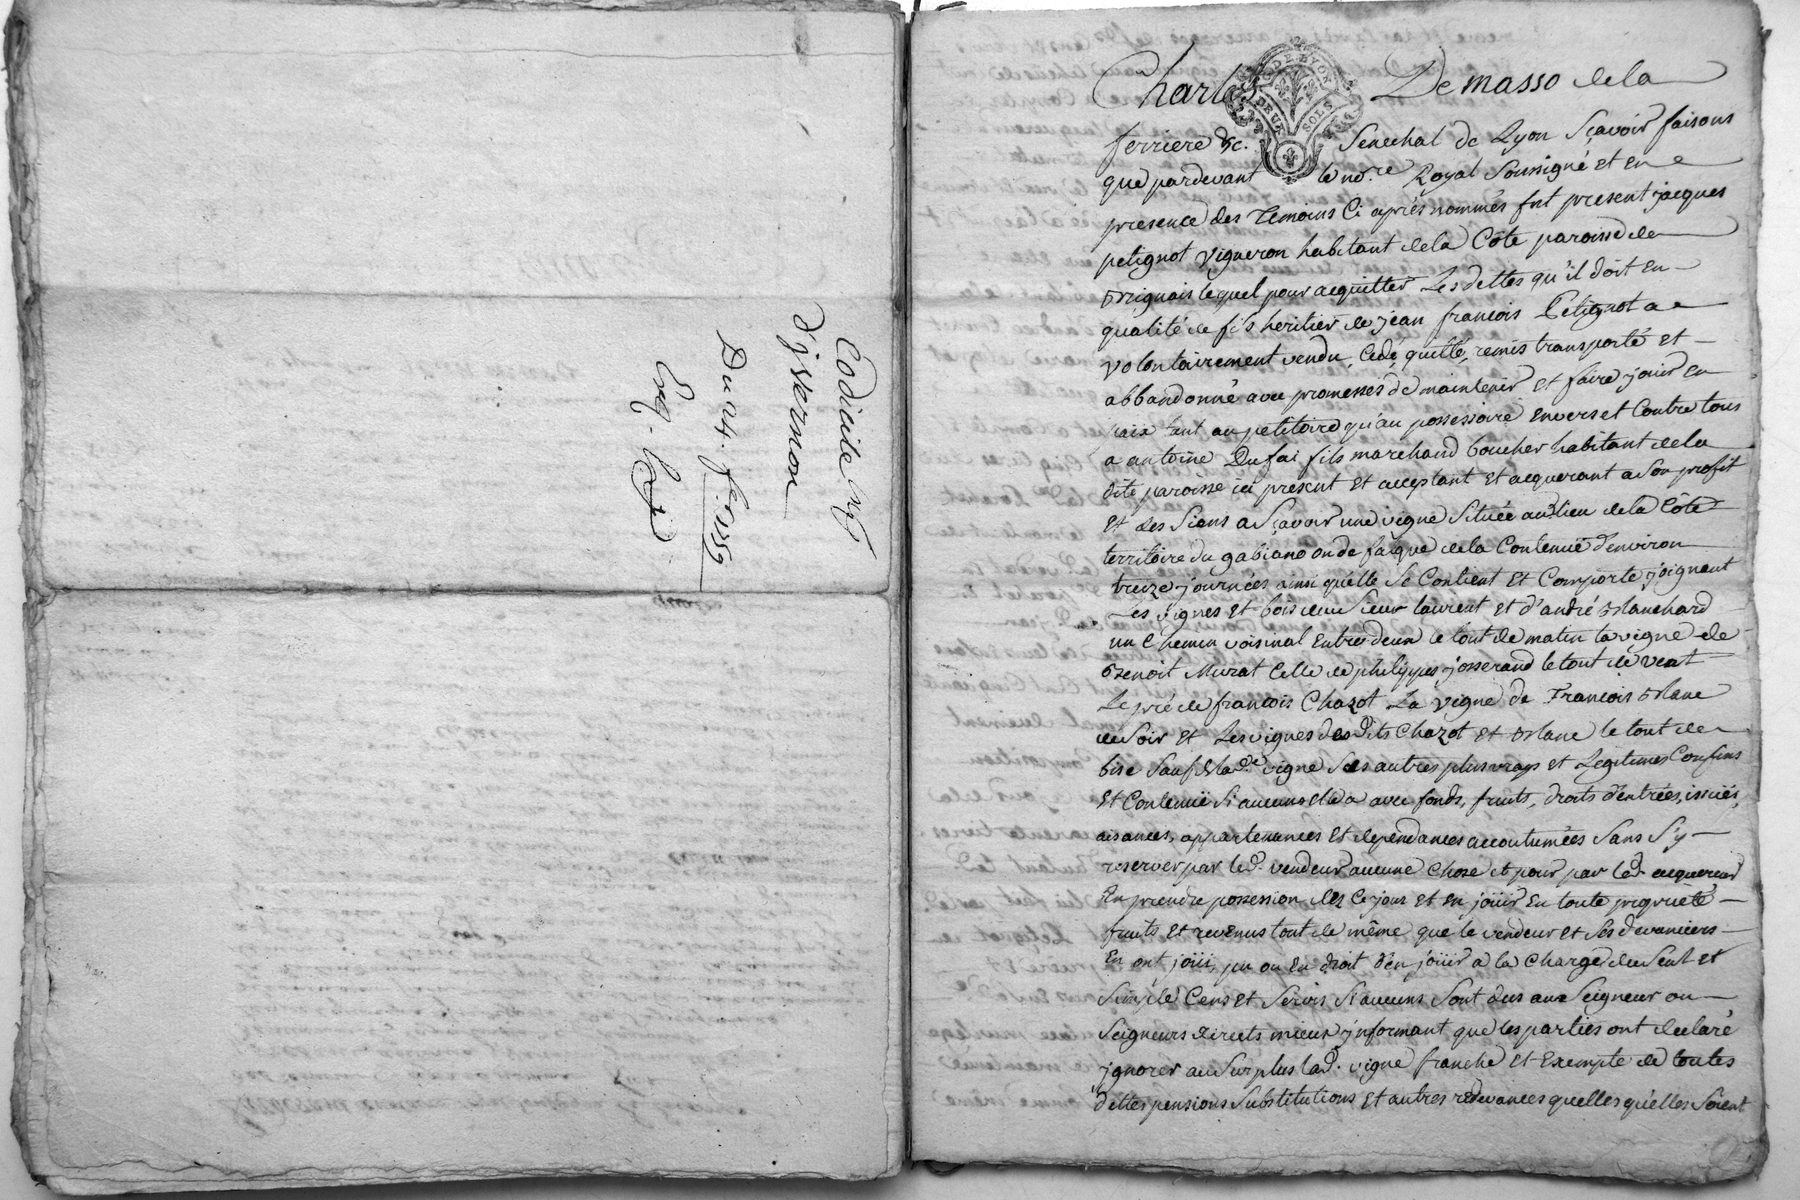 Codicile
d'jvernon
Du 24. f.r 1759
Charles De masso dela
ferriere &c. Senechal de Lyon Sçavoir faisons
que pardevant le no.re Royal Soussigné et en
presence des Temoins Ci après nommés fut present jacques
petignot vigneron habitant dela Côte paroisse de
Brignais lequel pour acquitter Les dettes qu'il doit en
qualité de fils heritier de jean francois Petignot a
volontairement vendu, Cedé, quitté, remis transporté et
abbandonné avec promesses de maintenir et faire jouir en
paix tant au petitoire qu'au possessoire envers et Contre tous
a antoine Dufai fils marchand boucher habitant de la
dite paroisse ici present et acceptant et acquerant a Son profit
et des Siens a Sçavoir une vigne Située au lieu de la Côte
territoire du gabiano ou de falque de la Contenuë d'environ
treize journées ainsi qu'elle Se Contient et Comporte joignant
Les vignes et bois du Sieur laurent et d'andré Blanchard
un Chemin voisinal entre deux le tout de matin la vigne de
Benoit Murat Celle de philippes josserand le tout de vent
Le pré de francois Chazot La vigne de Francois Blanc
de Soir et Les vignes desdits Chazot et Blanc le tout de
bise Sauf de la d.e vigne Ses autres plus vrays et Legitimes Confins
et Contenuë Si aucuns elle a avec fonds, fruits, droits d'entrées, issuës,
aisances, appartenances et dependances accoutumées Sans S'y
reserver par le d. vendeur aucune Chose et pour par led. acquereur
En prendre possession dez Ce jour et en joüir en toute proprieté
fruits et revenus tout de même que le vendeur et Ses devanciers
En ont joüi, pu ou eu droit d'en joüir a la Charge du Seul et
Simple Cens et Servis Si aucuns Sont dus aux Seigneur ou
Seigneurs directs mieux jnformant que les parties ont declaré
jgnorer au Surplus lad. vigne franche et Exempte de toutes
dettes pensions Substitutions et autres redevances quelles qu'elles Soient
DE LYON
DEUX SOLS